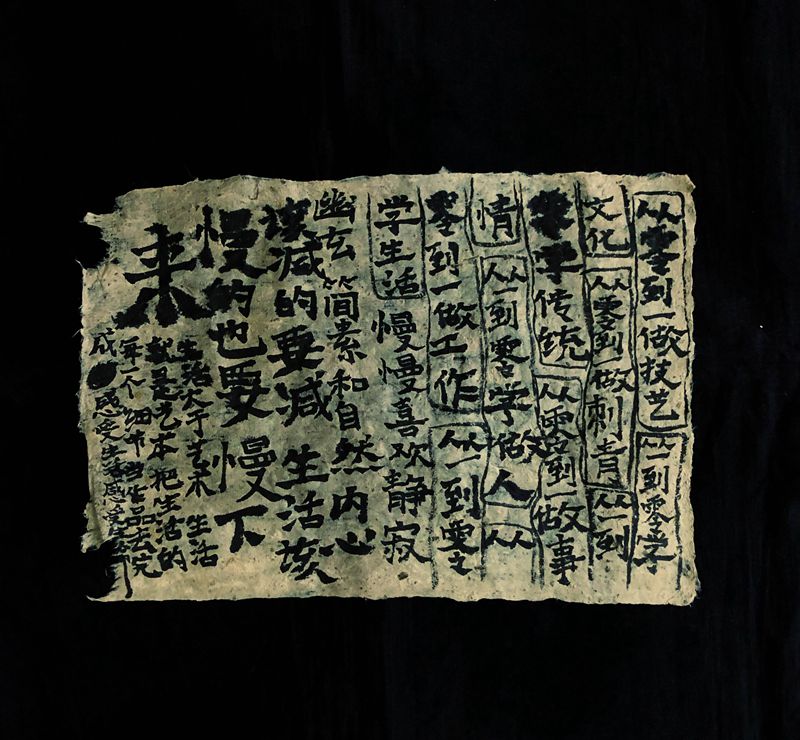 从零到一做技艺 从一到零学
文化 从零到一做刺青 从一到
零学传统 从零到一做事
情 从一到零学做人 从
零到一做工作 从一到零
学生活 慢慢喜欢静寂
幽玄简素和自然内心
减的要减 生活该
慢的也要慢下
来
生活大于艺术 生活
就是艺术 把生活的
每一个细节当作品去完
成 感受生活感受生